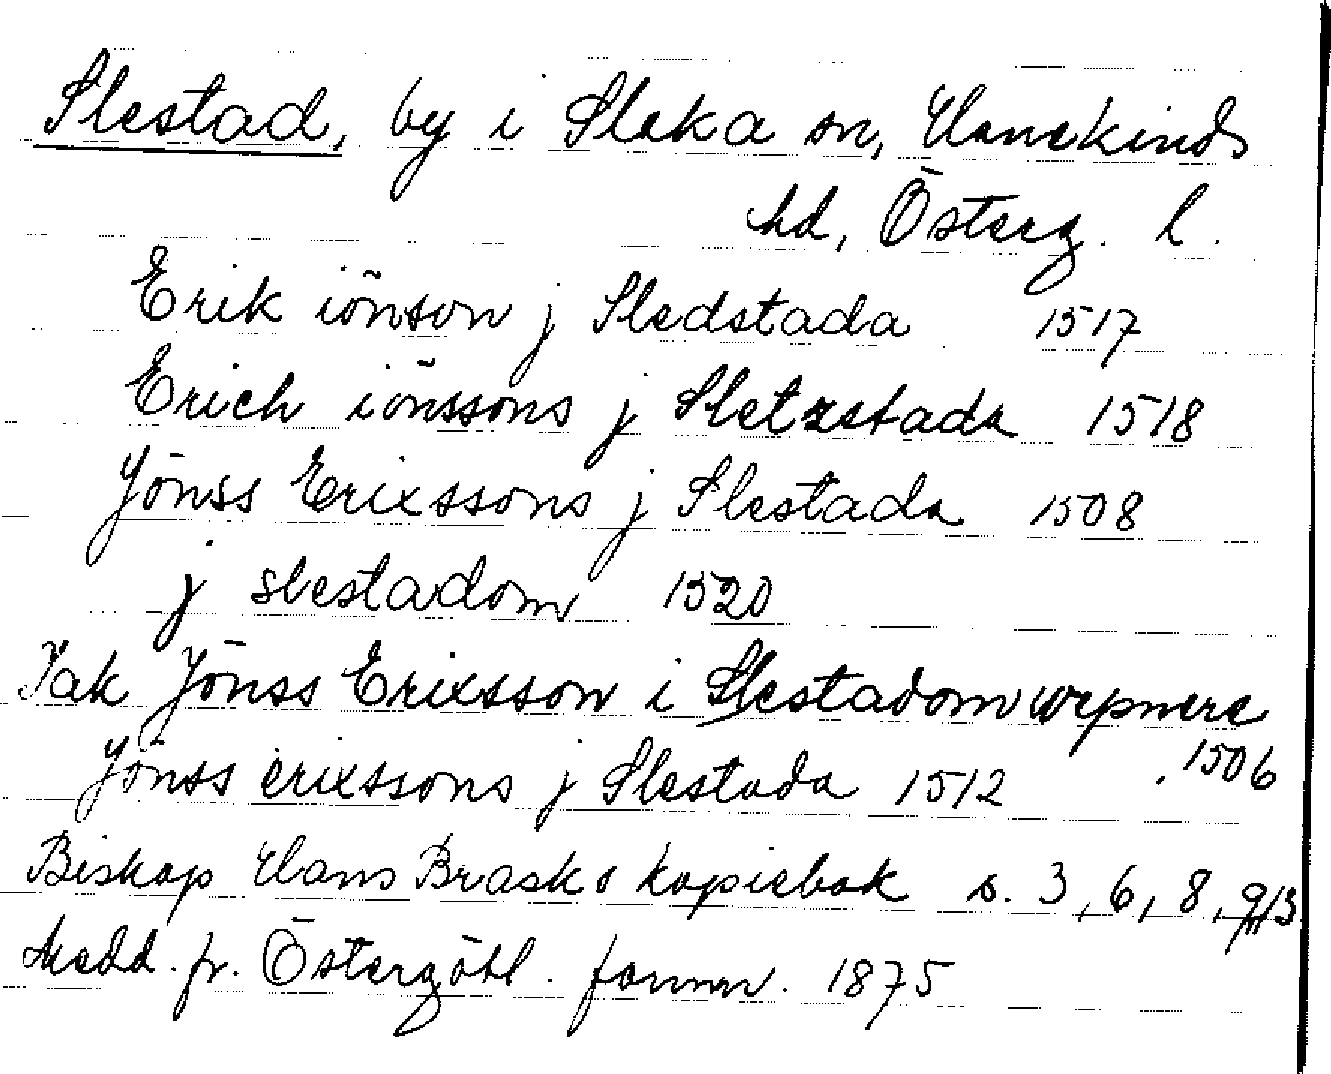 Slestad, by i Slaka sn, Hanekinds
hd, Österg. l.
Erik iönson j Sledstada 1517
Erich iönssons j Sletzstada 1518
Jönss Erixssons j Slestada 1508
j slestadom 1520
Jak Jönss Erixsson i Slestadom wepnere
1506
Jönss erixssons j Slestada 1512
Biskop Hans Brasks kopiebok s. 3, 6, 8, 9, 13
Medd. fr. Östergötl. fornm. 1875